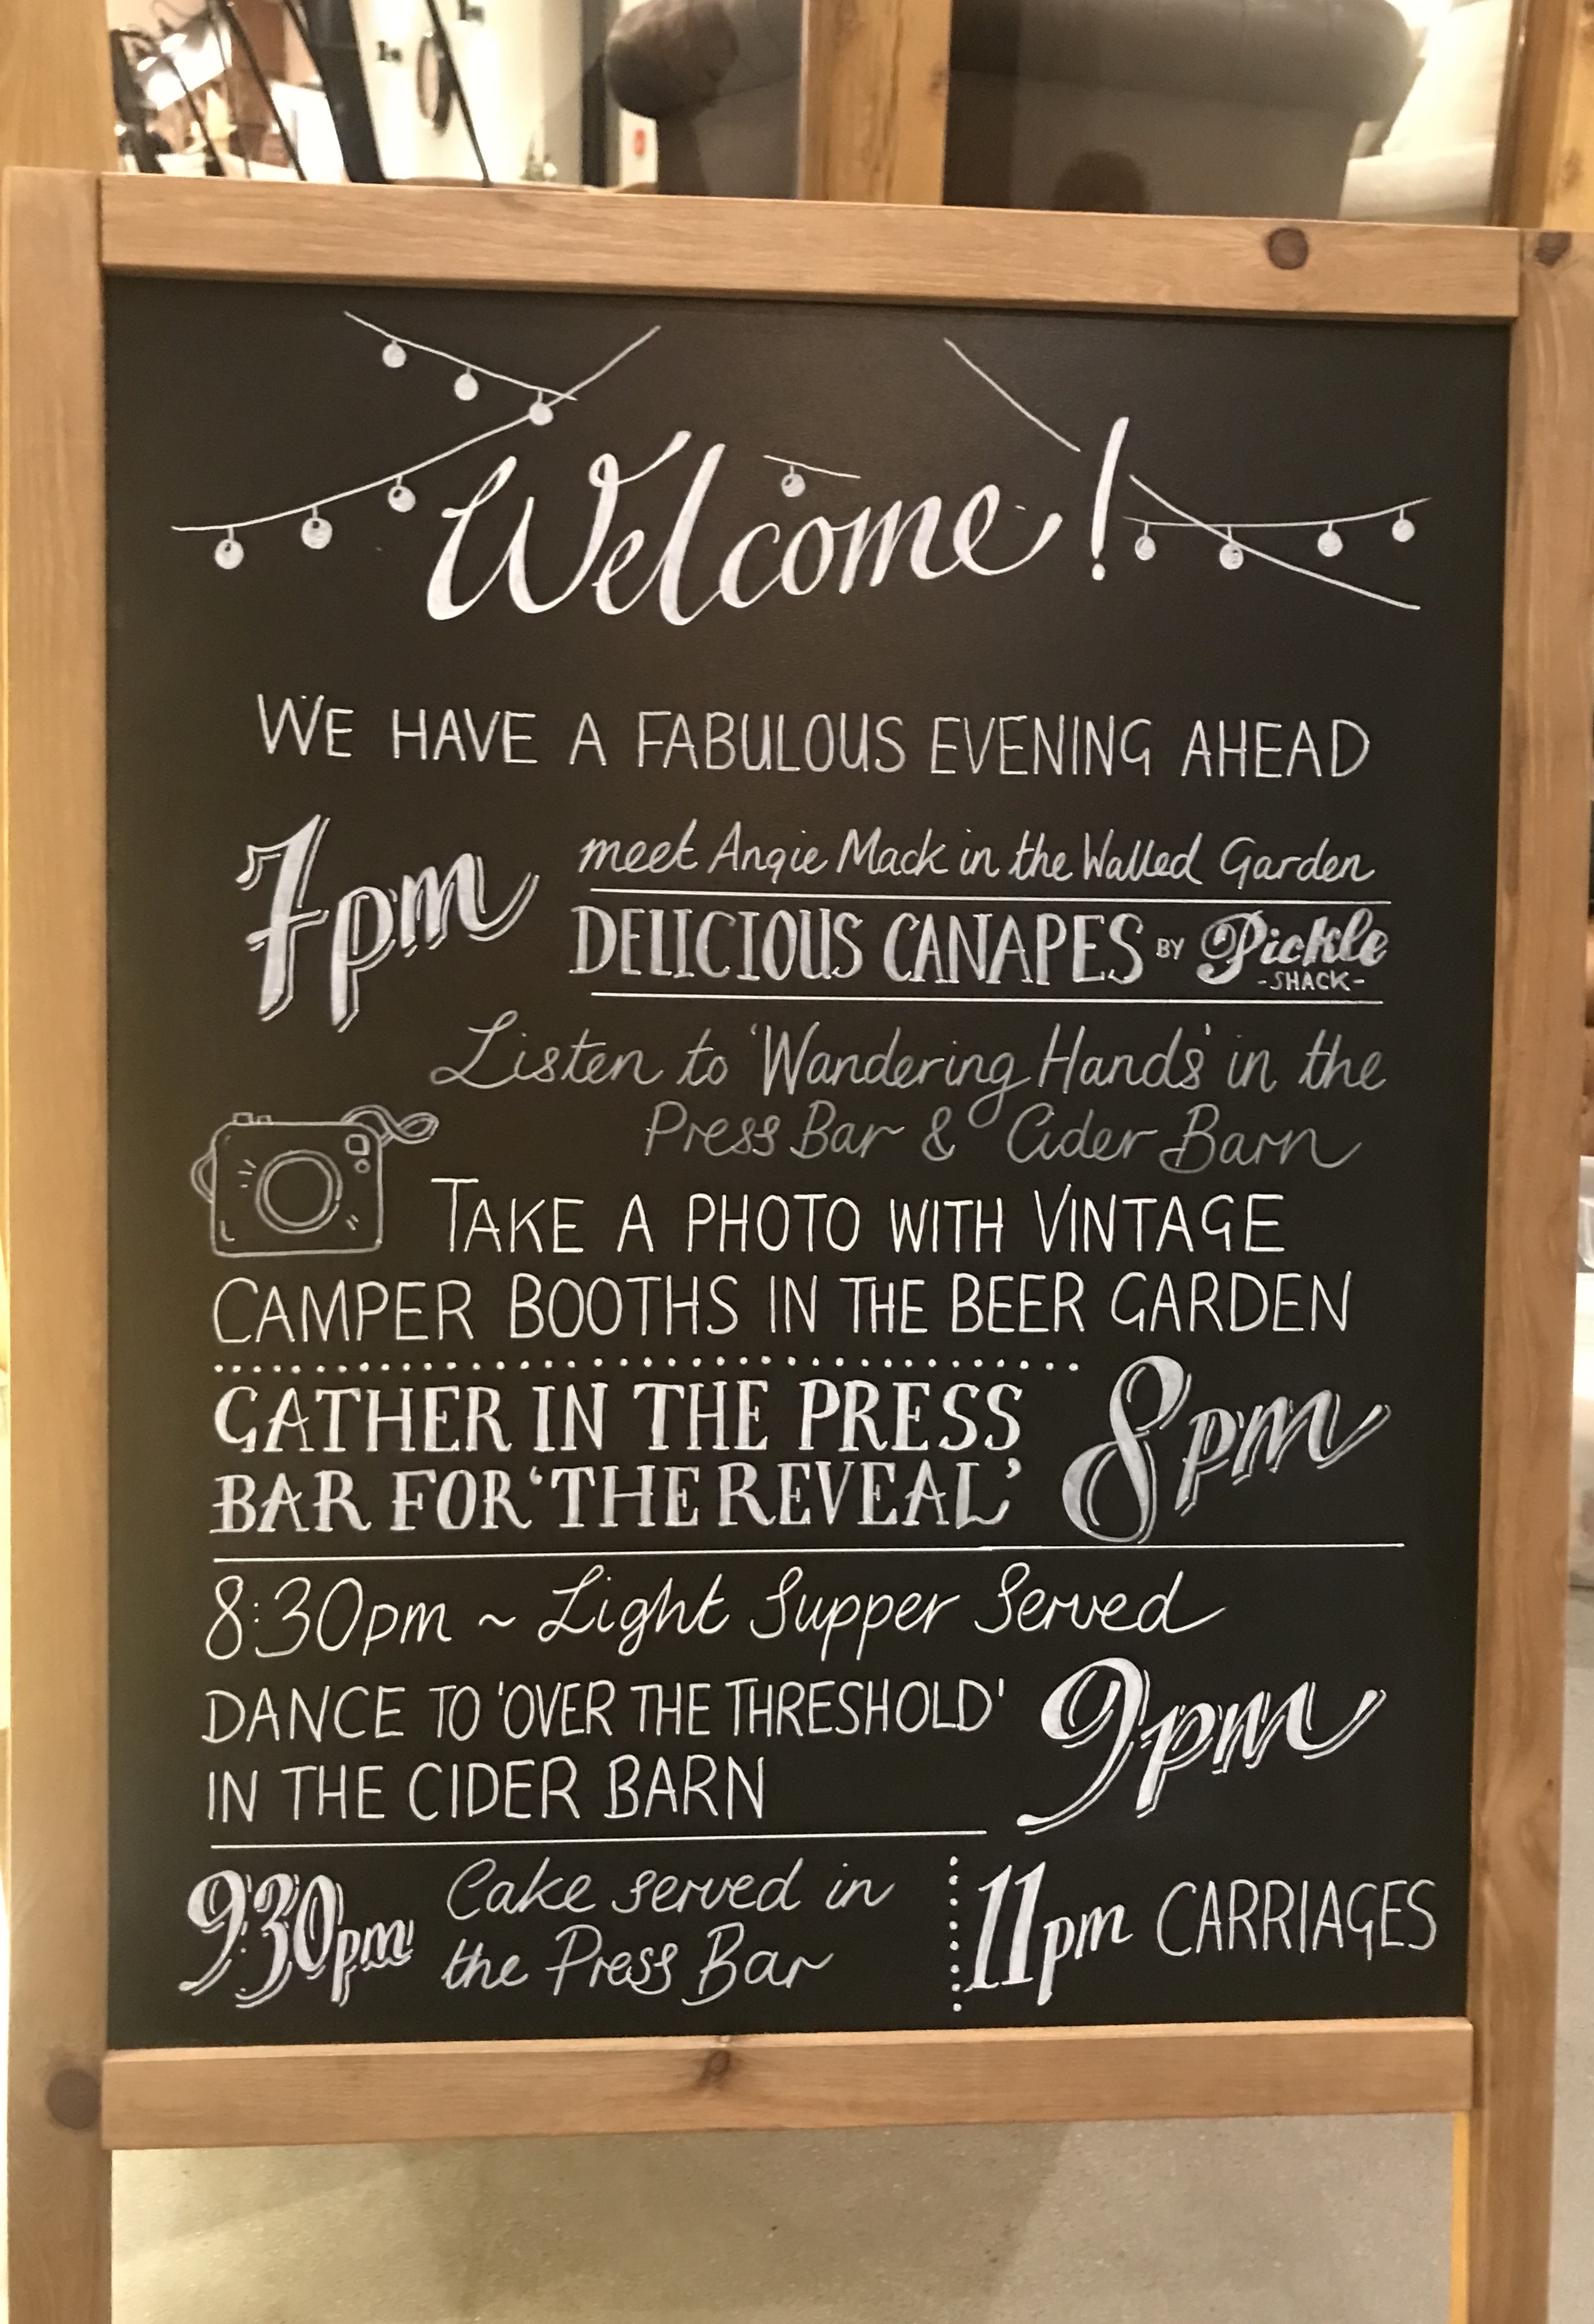 Welcome!
WE HAVE A FABULOUS EVENING AHEAD
7pm meet Angie Mack in the Walled Garden
DELICIOUS CANAPES BY Pickle
-SHACK-
Listen to 'Wandering Hands' in the
Press Bar & Cider Barn
TAKE A PHOTO WITH VINTAGE
CAMPER BOOTHS IN THE BEER GARDEN
GATHER IN THE PRESS
BAR FOR 'THE REVEAL' 8pm
8:30pm ~ Light Supper Served
DANCE TO 'OVER THE THRESHOLD'
IN THE CIDER BARN 9pm
9:30pm Cake served in
the Press Bar
11pm CARRIAGES